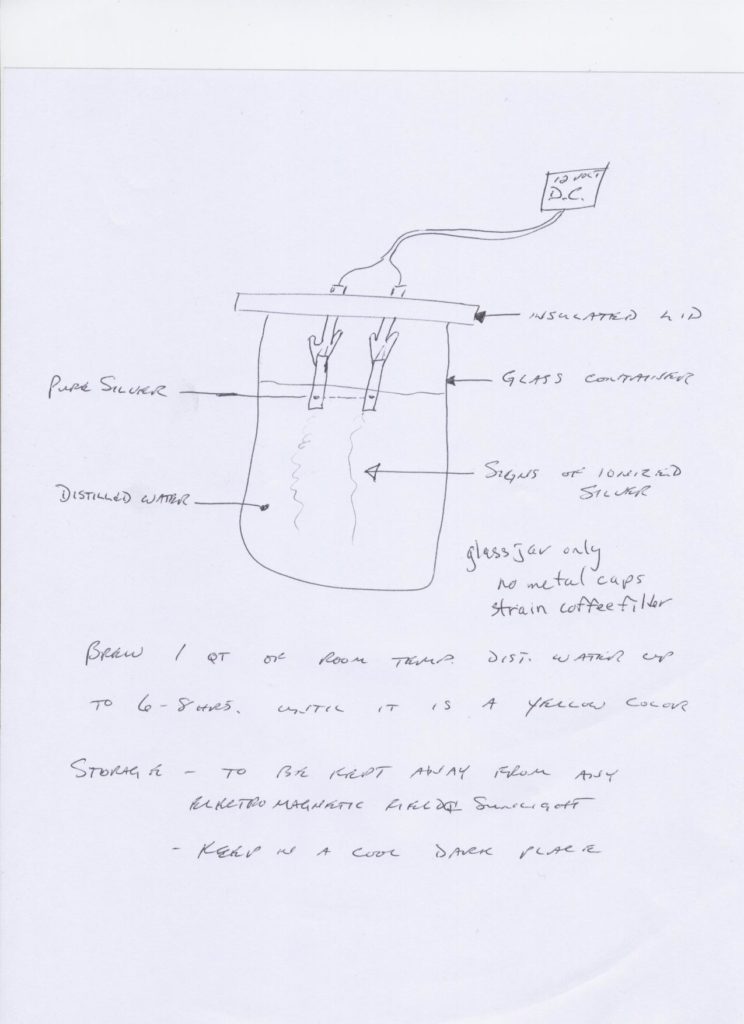 12 VOLT
D.C.
INSULATED LID
PURE SILVER
GLASS CONTAINER
SIGNS OF IONIZED
SILVER
DISTILLED WATER
glass jar only
no metal caps
strain coffee filter
BREW 1 QT OF ROOM TEMP. DIST. WATER UP
TO 6-8 HRS. UNTIL IT IS A YELLOW COLOR
STORAGE - TO BE KEPT AWAY FROM ANY
ELECTROMAGNETIC FIELD & SUNLIGHT
- KEEP IN A COOL DARK PLACE